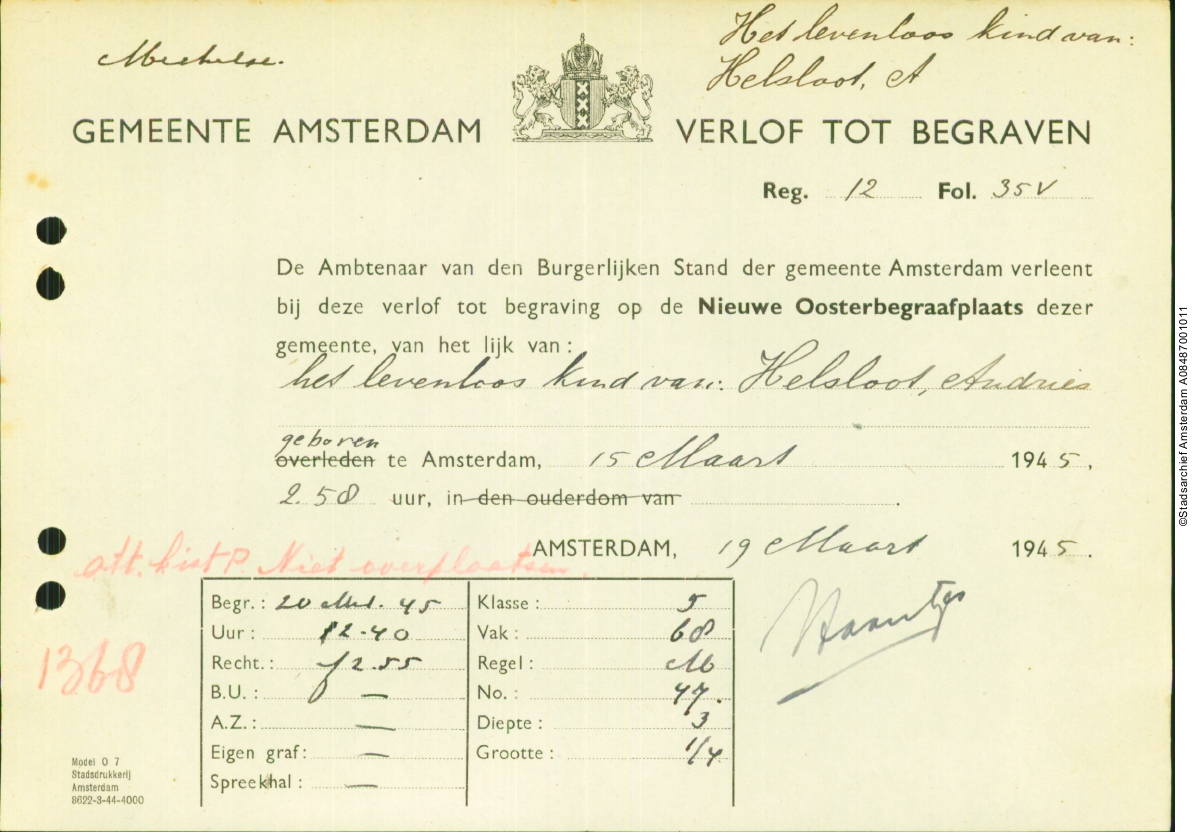 Mechelse.
Het levenloos kind van:
Helsloot, A
GEMEENTE AMSTERDAM VERLOF TOT BEGRAVEN
Reg. 12 Fol. 35V
De Ambtenaar van den Burgerlijken Stand der gemeente Amsterdam verleent
bij deze verlof tot begraving op de Nieuwe Oosterbegraafplaats dezer
gemeente, van het lijk van:
het levenloos kind van: Helsloot, Andries
geboren
overleden te Amsterdam, 15 Maart 1945,
2.58 uur, in den ouderdom van .
AMSTERDAM, 19 Maart 1945.
att. kist P. Niet overplaatsen.
1368
Begr.: 20 Mrt. 45
Uur: 12-40
Recht.: f 2.55
B.U.: —
A.Z.: —
Eigen graf: —
Spreekhal: —
Klasse: 5
Vak: 68
Regel: M
No.: 47.
Diepte: 3
Grootte: 1/4
Model O 7
Stadsdrukkerij
Amsterdam
8622-3-44-4000
©Stadsarchief Amsterdam A08487001011